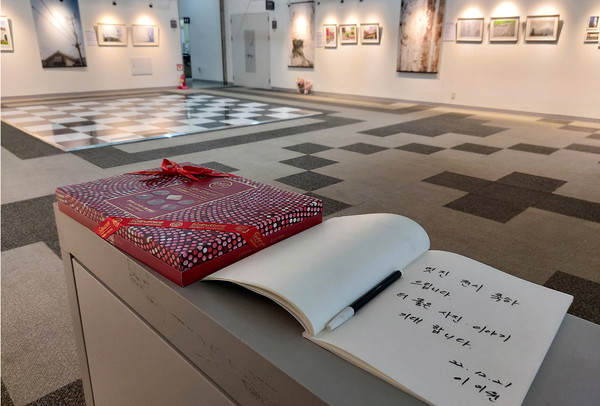 멋진 전시 축하
드립니다
더 좋은 사진 이야기
기대 합니다.
22. 12. 21